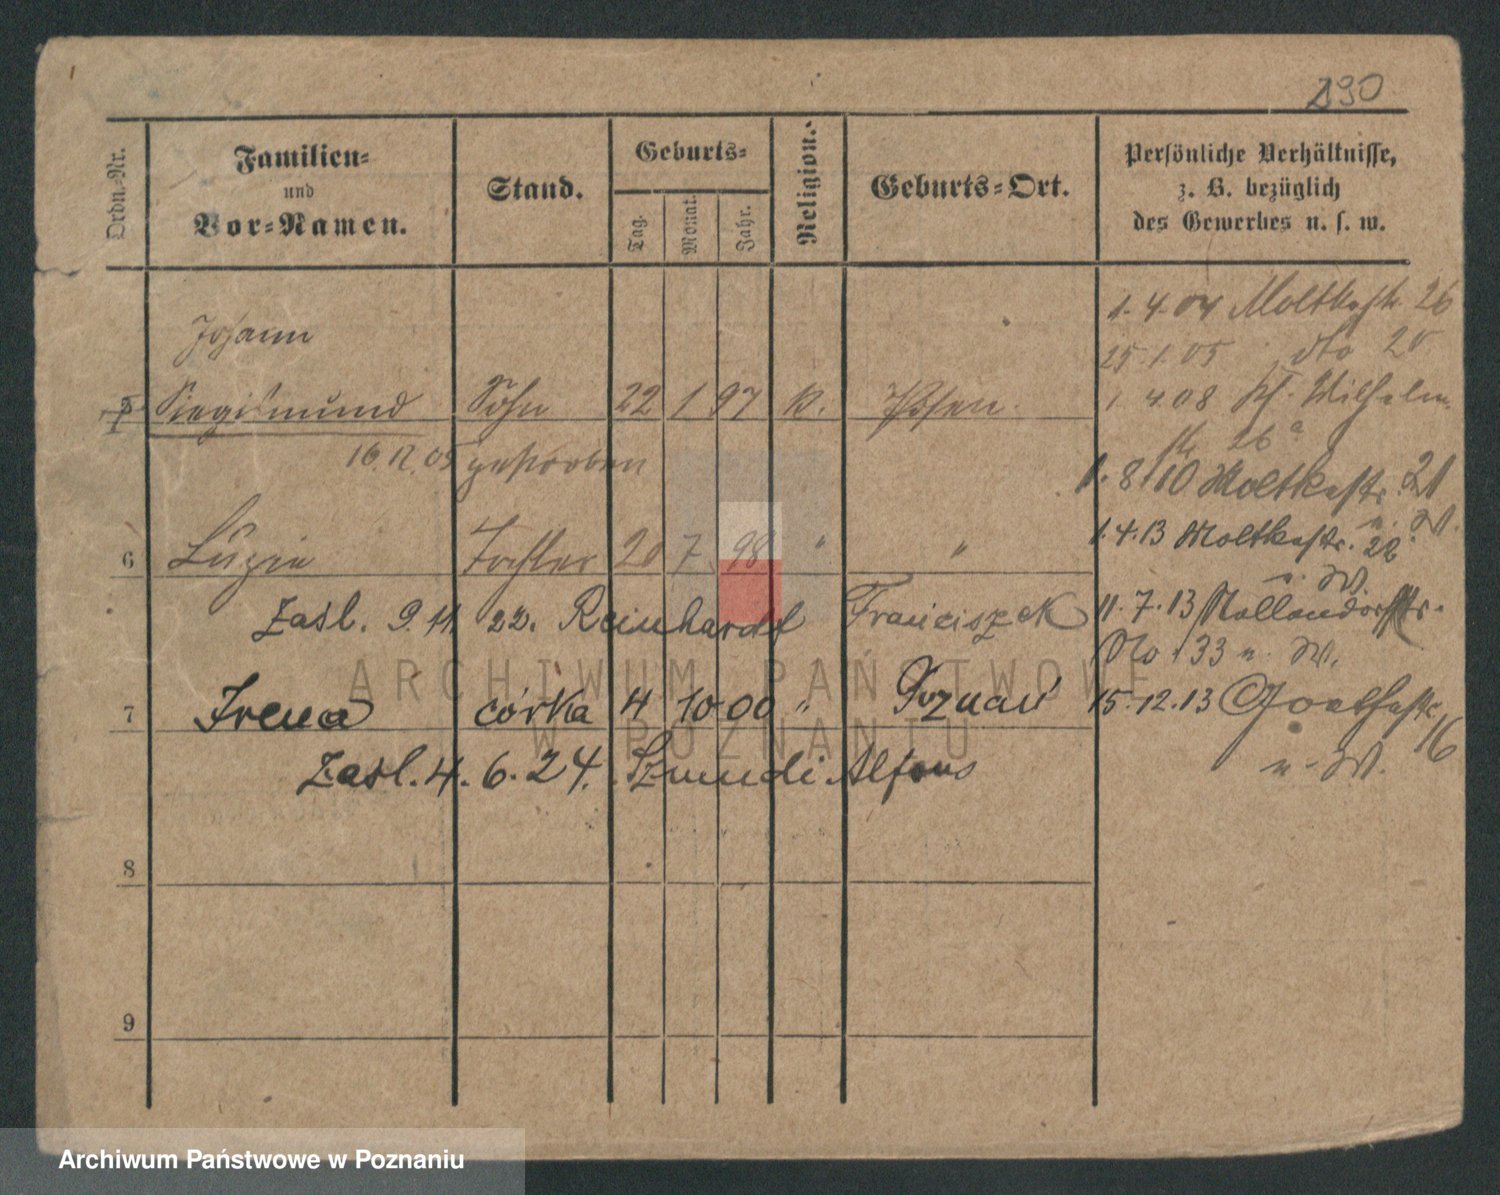 130
Ordn.-Nr.
Familien-
und
Vor-Namen.
Stand.
Geburts-
Tag.
Monat.
Jahr.
Religion.
Geburts-Ort.
Persönliche Verhältnisse,
z. B. bezüglich
des Gewerbes u. s. w.
1. 4. 04 Moltkestr. 26
25. 1. 05 dto 20
Johann
5 Siegismund Sohn 22 1 97 k. Posen.
1. 4. 08 Kf. Wilhelm
str. 26 a
16. 12. 05 gestorben
1. 8. 10 Moltkestr. 21
u. W.
6 Luzie Tochter 20 7 98 " "
1. 4. 13 Moltkestr. 22
u. W.
Zaśl. 9. 11. 22. Reinhardt Franciszek
11. 7. 13 Nollendorfstr.
No 33 u. W.
7 Irena córka 4 10 00 " Poznań
15. 12. 13 Goethestr. 16
u. W.
Zaśl. 4. 6. 24. Szmudi Alfons
8
9
ARCHIWUM PAŃSTWOWE
W POZNANIU
Archiwum Państwowe w Poznaniu